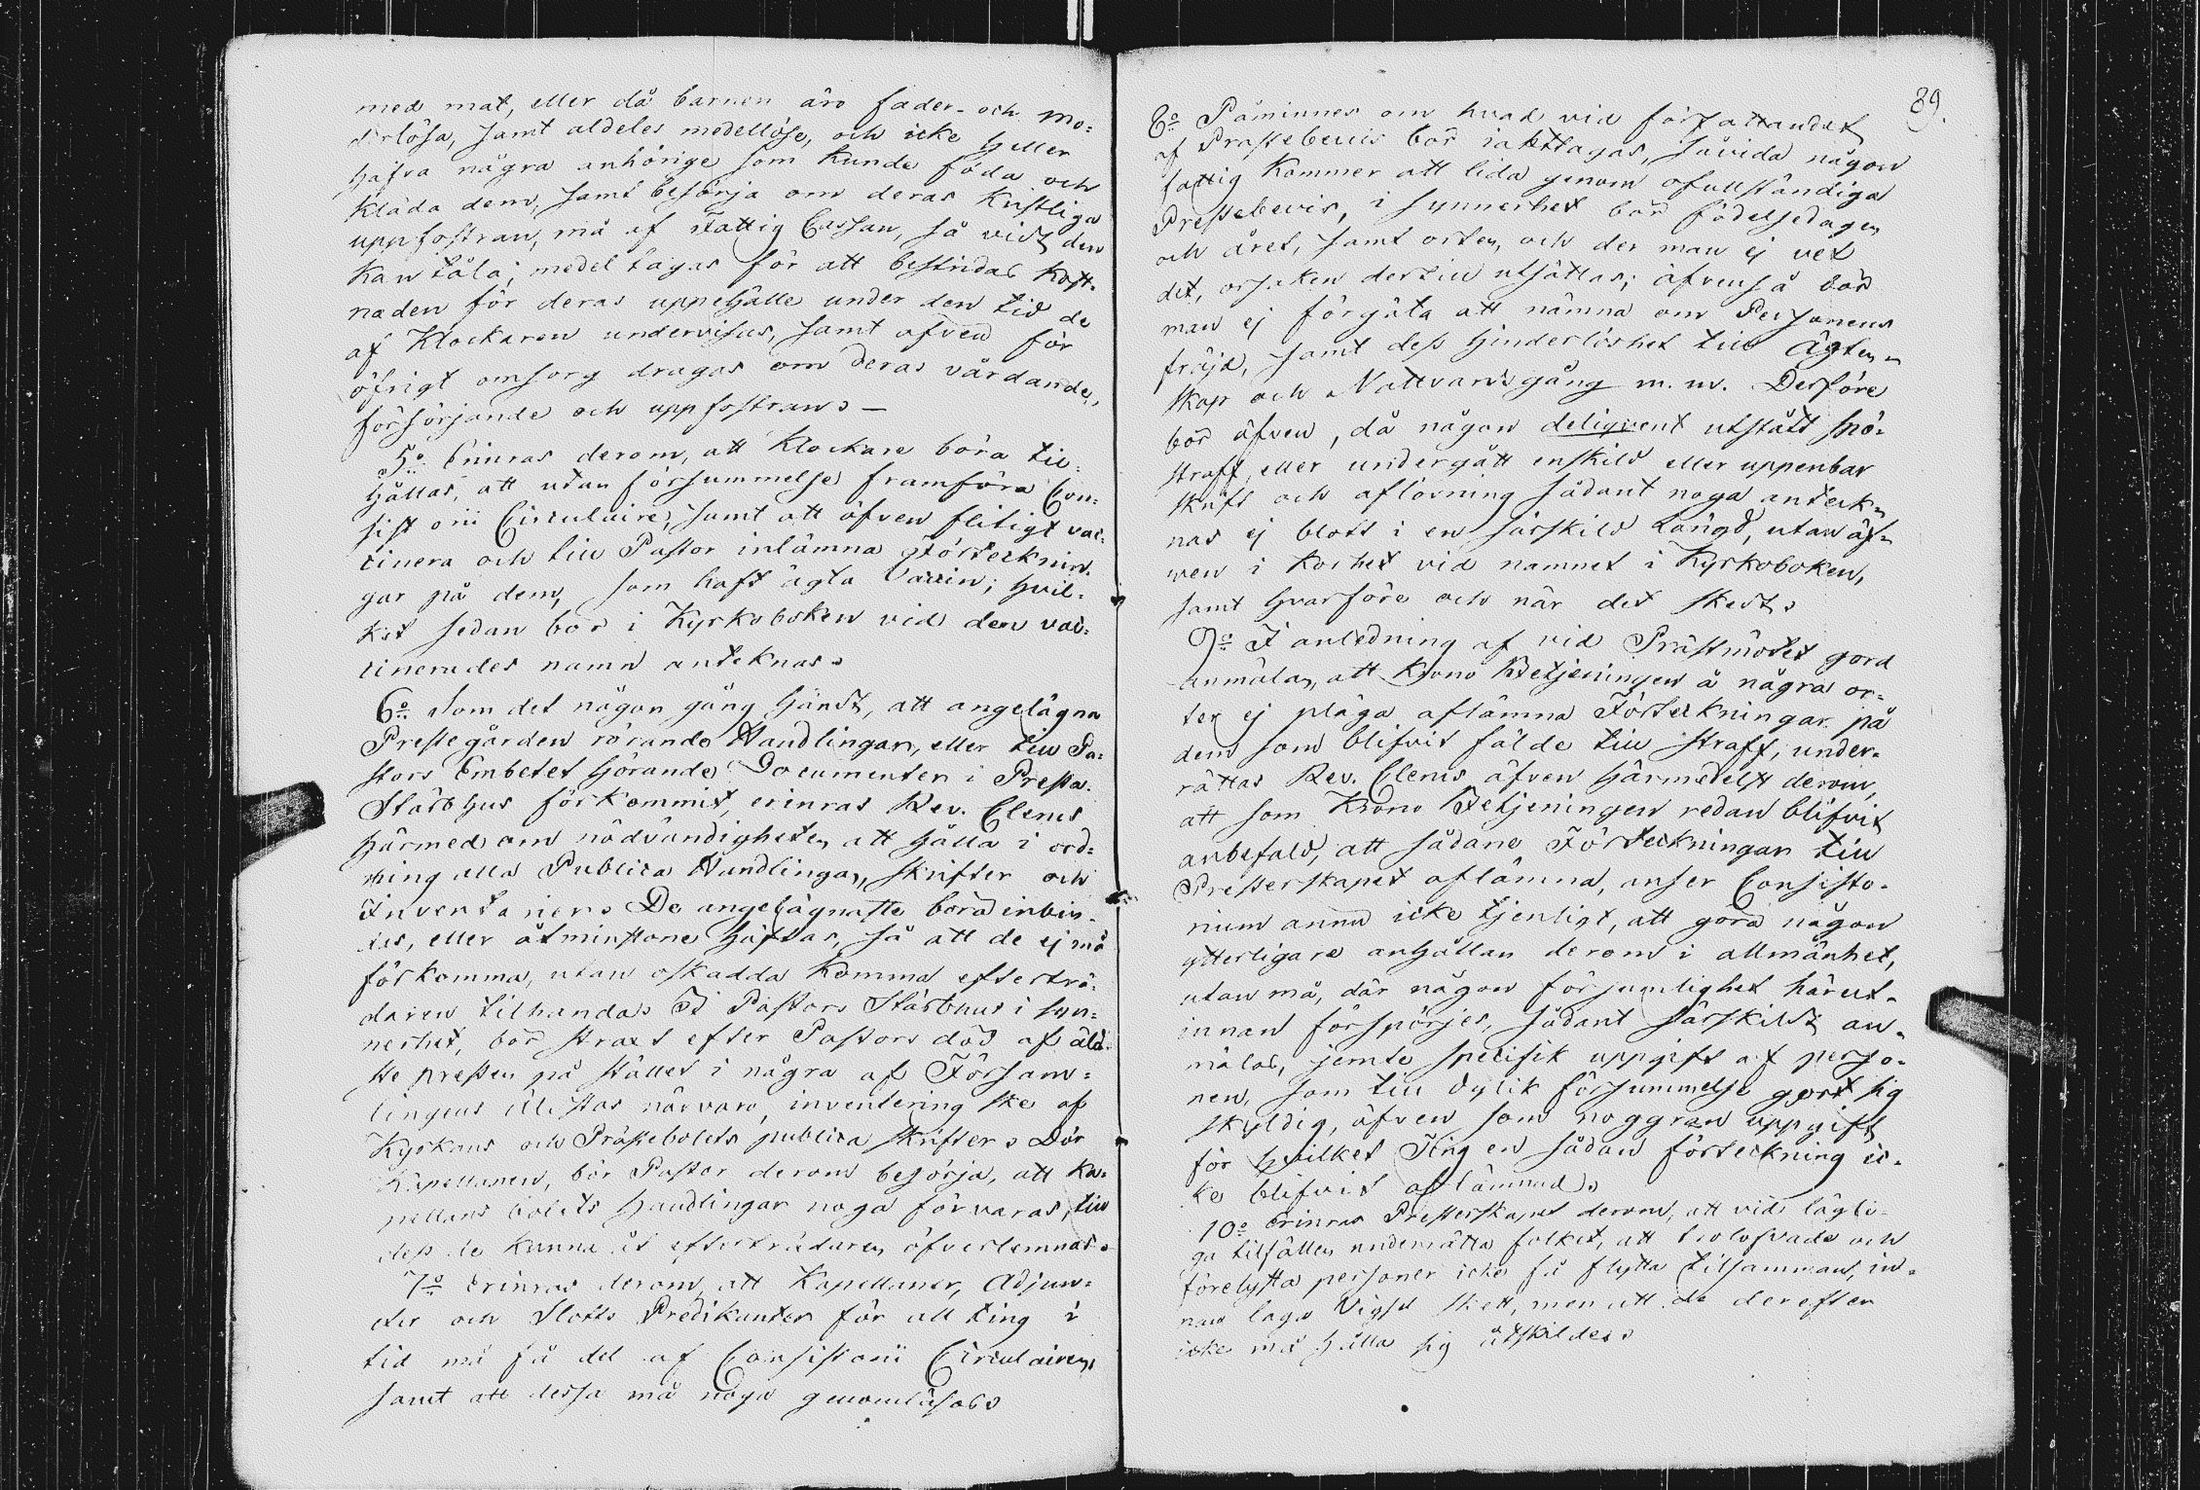 med mat, eller då barnen äro fader- och mo-
derlösa, samt aldeles medellöse, och icke heller
hafva några anhörige som kunde föda och
kläda dem, samt besörja om deras kristliga
uppfostran, må af Fattig Cassan, så vidt den
kan tåla, medel tagas för att bestrida kost-
naden för deras uppehälle under den tid de
af Klockaren undervisas, samt äfven för
öfrigt omsorg dragas om deras vårdande,
försörjande och uppfostran.
5:o Erinras derom, att Klockare böra til-
hållas, att utan försummelse framföra Con-
sistorii Circulairer, samt att äfven flitigt vac-
cinera och till Pastor inlämna Förtecknin-
gar på dem, som haft ägta Vaccin; hvil-
ket sedan bör i Kyrkoboken vid den vac-
cinerades namn anteknas.
6:o Som det någon gång händt, att angelägna
Prestegården rörande Handlingar, eller till Pa-
stors Embetet hörande Documenter i Presta-
Stärbhus förkommit, erinras Rev. Clerus
härmed om nödvändigheten att hålla i ord-
ning alla Publica Handlingar, skrifter och
Inventarier. De angelägnaste böra inbin-
das, eller åtminstone häftas, så att de ej må
förkomma, utan oskadda komma efterträ-
daren tilhanda. I Pastors Stärbhus i syn-
nerhet, bör straxt efter Pastors död af äld-
ste presten på stället i några af Försam-
lingens äldstas närvaro, inventering ske af
Kyrkans och Prästebolets publica skrifter. Dör
Kapellanen, bör Pastor derom besörja, att Ka-
pellans bolets handlingar noga förvaras, till
dess de kunna åt efterträdaren öfverlemnas.
7:o Erinras derom, att Kapellaner, Adjunc-
ter och Slotts Predikanter för all ting i
tid må få del af Consistorii Circulairer,
samt att dessa må noga genomläsas.
89.
8:o Påminnes om hvad vid författandet
af Prästebevis bör iakttagas, såvida någon
fattig kommer att lida genom ofullständiga
Prestebevis, i synnerhet bör födelsedagen
och året, samt orten, och der man ej vet
det, orsaken dertill utsättas; äfvenså bör
man ej förgäta att nämna om Personens
fräjd, samt dess hinderlöshet till Ägten-
skap och Nattvardsgång m.m. Derföre
bör äfven, då någon deliqvent utstått spö-
straff, eller undergått enskild eller uppenbar
skrift och aflösning sådant noga anteck-
nas ej blott i en särskild Längd, utan äf-
ven i korthet vid namnet i Kyrkoboken,
samt hvarföre och när det skedt.
9:o I anledning af vid Prästmötet gord
anmälan, att Krono Betjeningen å några or-
ter ej pläga aflämna Förteckningar på
dem som blifvit fälde till straff, under-
rättas Rev. Clerus äfven härmedelst derom,
att som Krono Betjeningen redan blifvit
anbefald, att sådane Förteckningar till
Presterskapet aflämna, anser Consisto-
rium ännu icke tjenligt, att göra någon
ytterligare anhållan derom i allmänhet,
utan må, där någon försumlighet härut-
innan förspörjes, sådant särskildt an-
mälas, jemte specifik uppgift af perso-
nen, som till dylik försummelse gort sig
skyldig, äfven som noggran uppgift
för hvilket Ting en sådan förteckning ic-
ke blifvit aflämnad.
10:o Erinras Presterskapet derom, att vid tägli-
ga tilfällen underrätta folket, att trolofvade och
förelysta personer icke få flytta tilsammans, in-
nan laga Vigsel skett, men att de derefter
icke må hålla sig åtskilde.